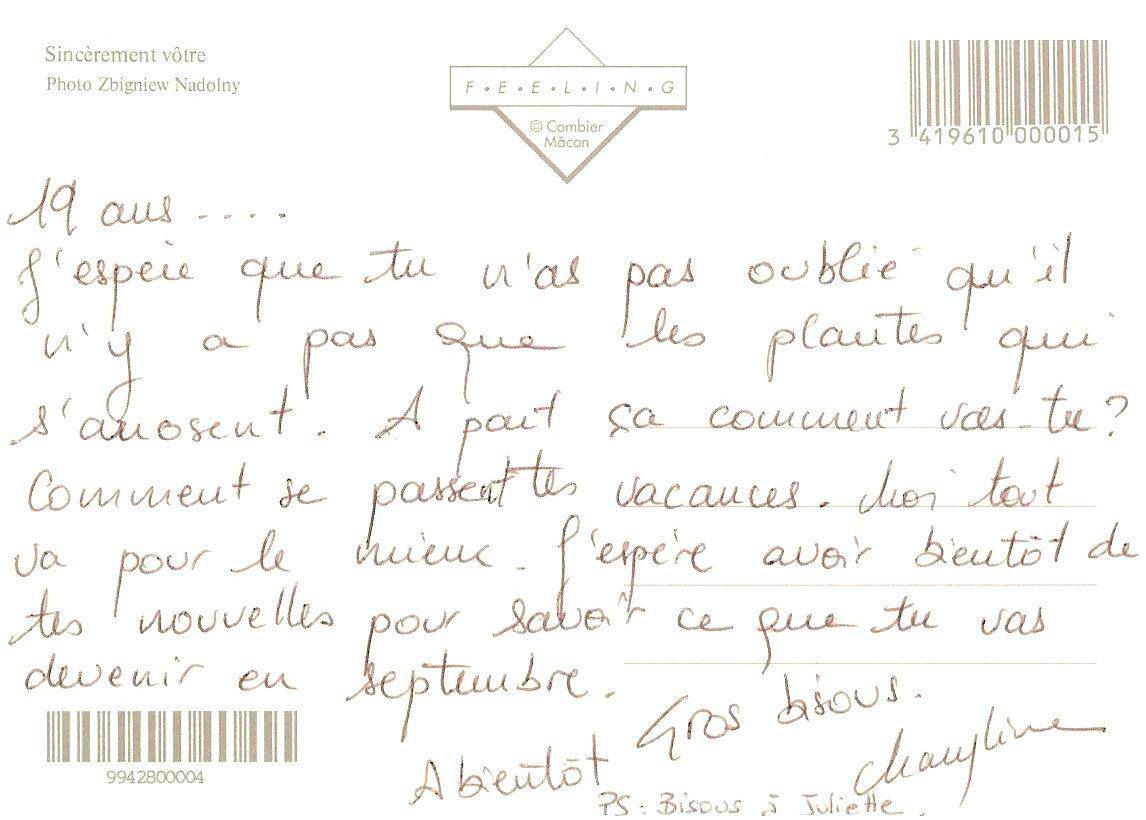 Sincèrement vôtre
Photo Zbigniew Nadolny
F•E•E•L•I•N•G
© Combier
Mâcon
3 419610 000015
19 ans ....
J'espère que tu n'as pas oublié qu'il
n'y a pas que les plantes qui
s'arrosent. A part ça comment vas-tu?
Comment se passent tes vacances. Moi tout
va pour le mieux. J'espère avoir bientôt de
tes nouvelles pour savoir ce que tu vas
devenir en septembre.
Gros bisous.
9942800004
A bientôt
PS: Bisous à Juliette.